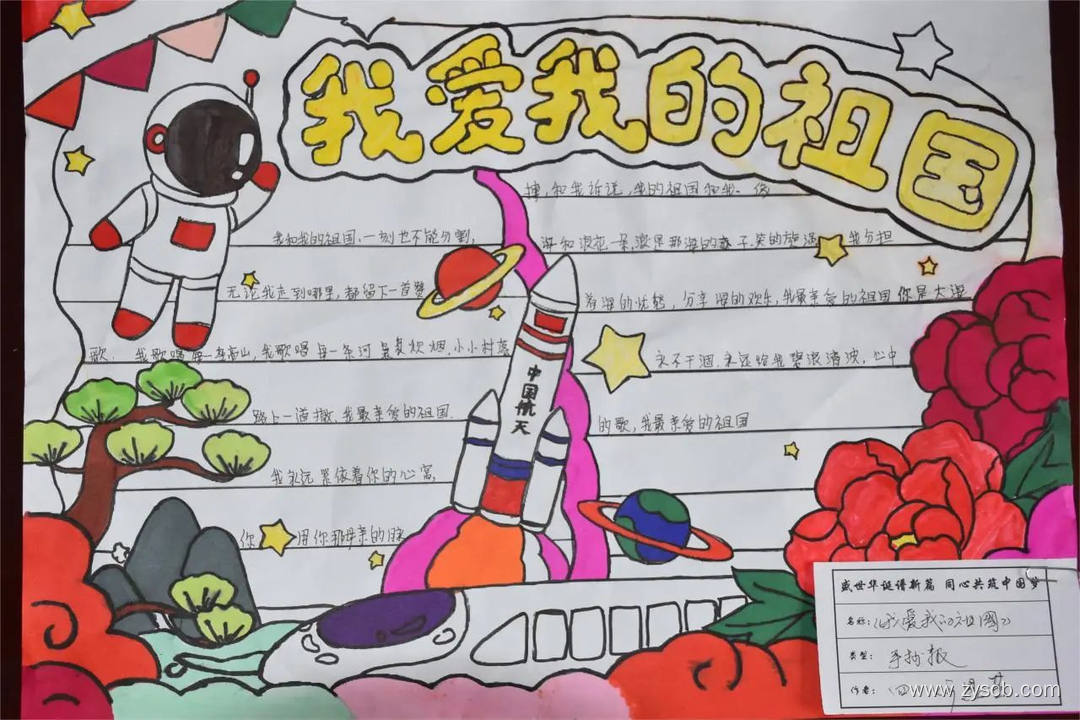 我爱我的祖国
我和我的祖国,一刻也不能分割,
无论我走到哪里,都留下一首赞
歌. 我歌唱每一座高山,我歌唱每一条河 袅袅炊烟,小小村落
路上一道辙,我最亲爱的祖国.
我永远紧依着你的心窝,
你 用你那母亲的脉
搏,和我诉说,我的祖国和我.
浪是那海的 子, 我分担
着海的忧愁, 分享海的欢乐,我最亲爱的祖国你是大海
永不干涸.永远给我碧浪清波,心中
的歌,我最亲爱的祖国
中国航天
盛世华诞谱新篇 同心共筑中国梦
名称:《我爱我的祖国》
类型: 手抄报
作者:
www.zysdb.com